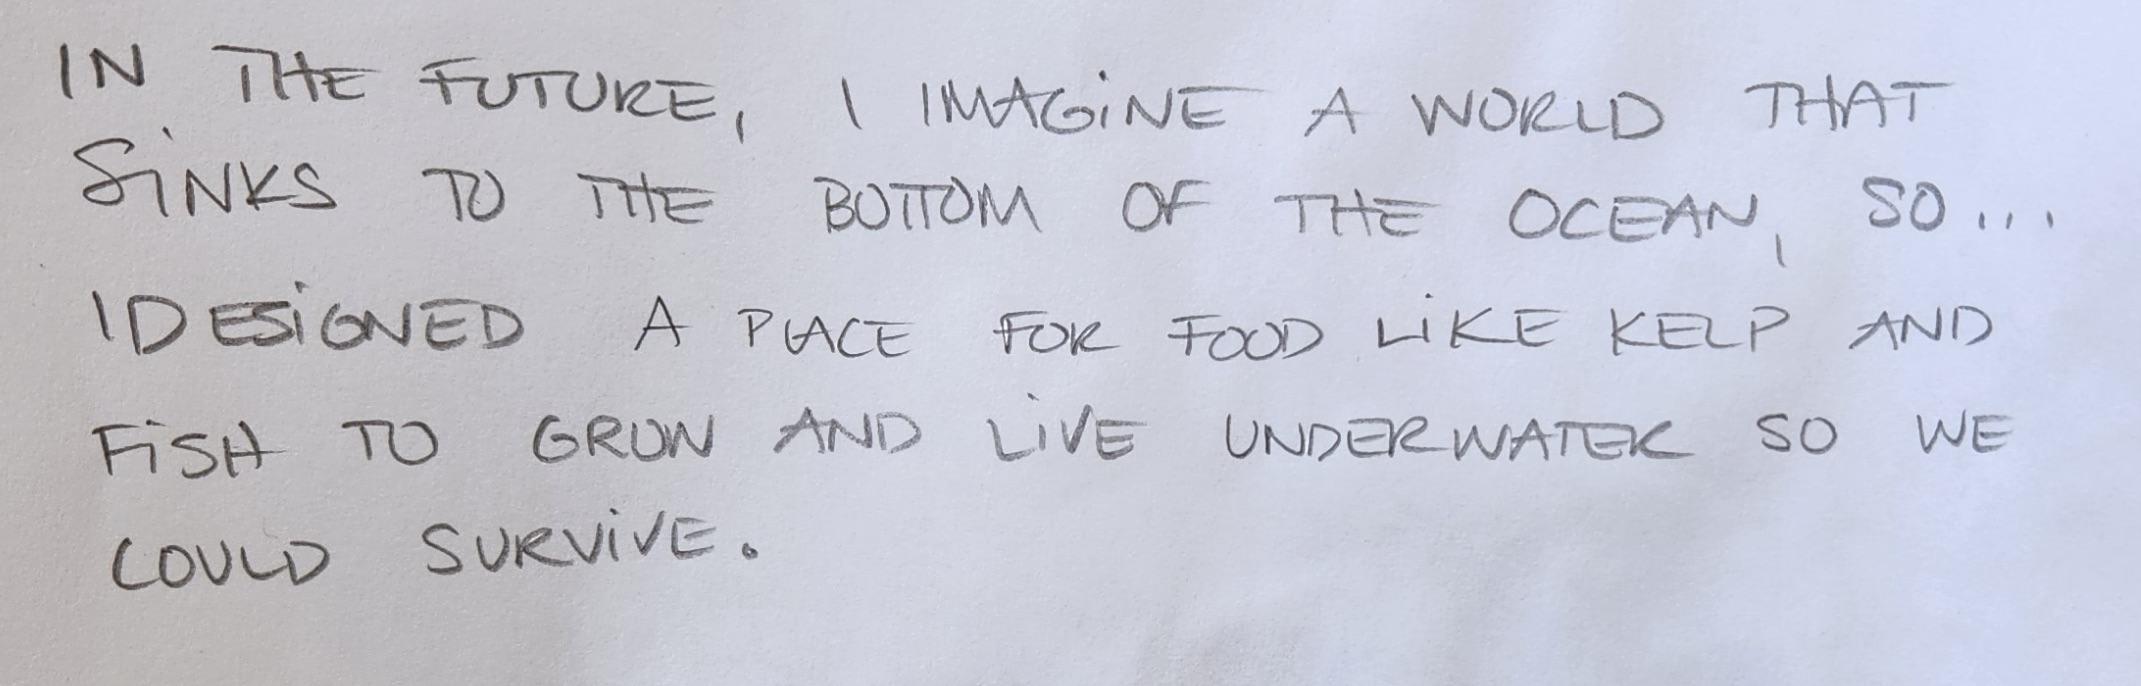 IN THE FUTURE, I IMAGINE A WORLD THAT
SINKS TO THE BOTTOM OF THE OCEAN, SO...
I DESIGNED A PLACE FOR FOOD LIKE KELP AND
FISH TO GROW AND LIVE UNDERWATER SO WE
COULD SURVIVE.